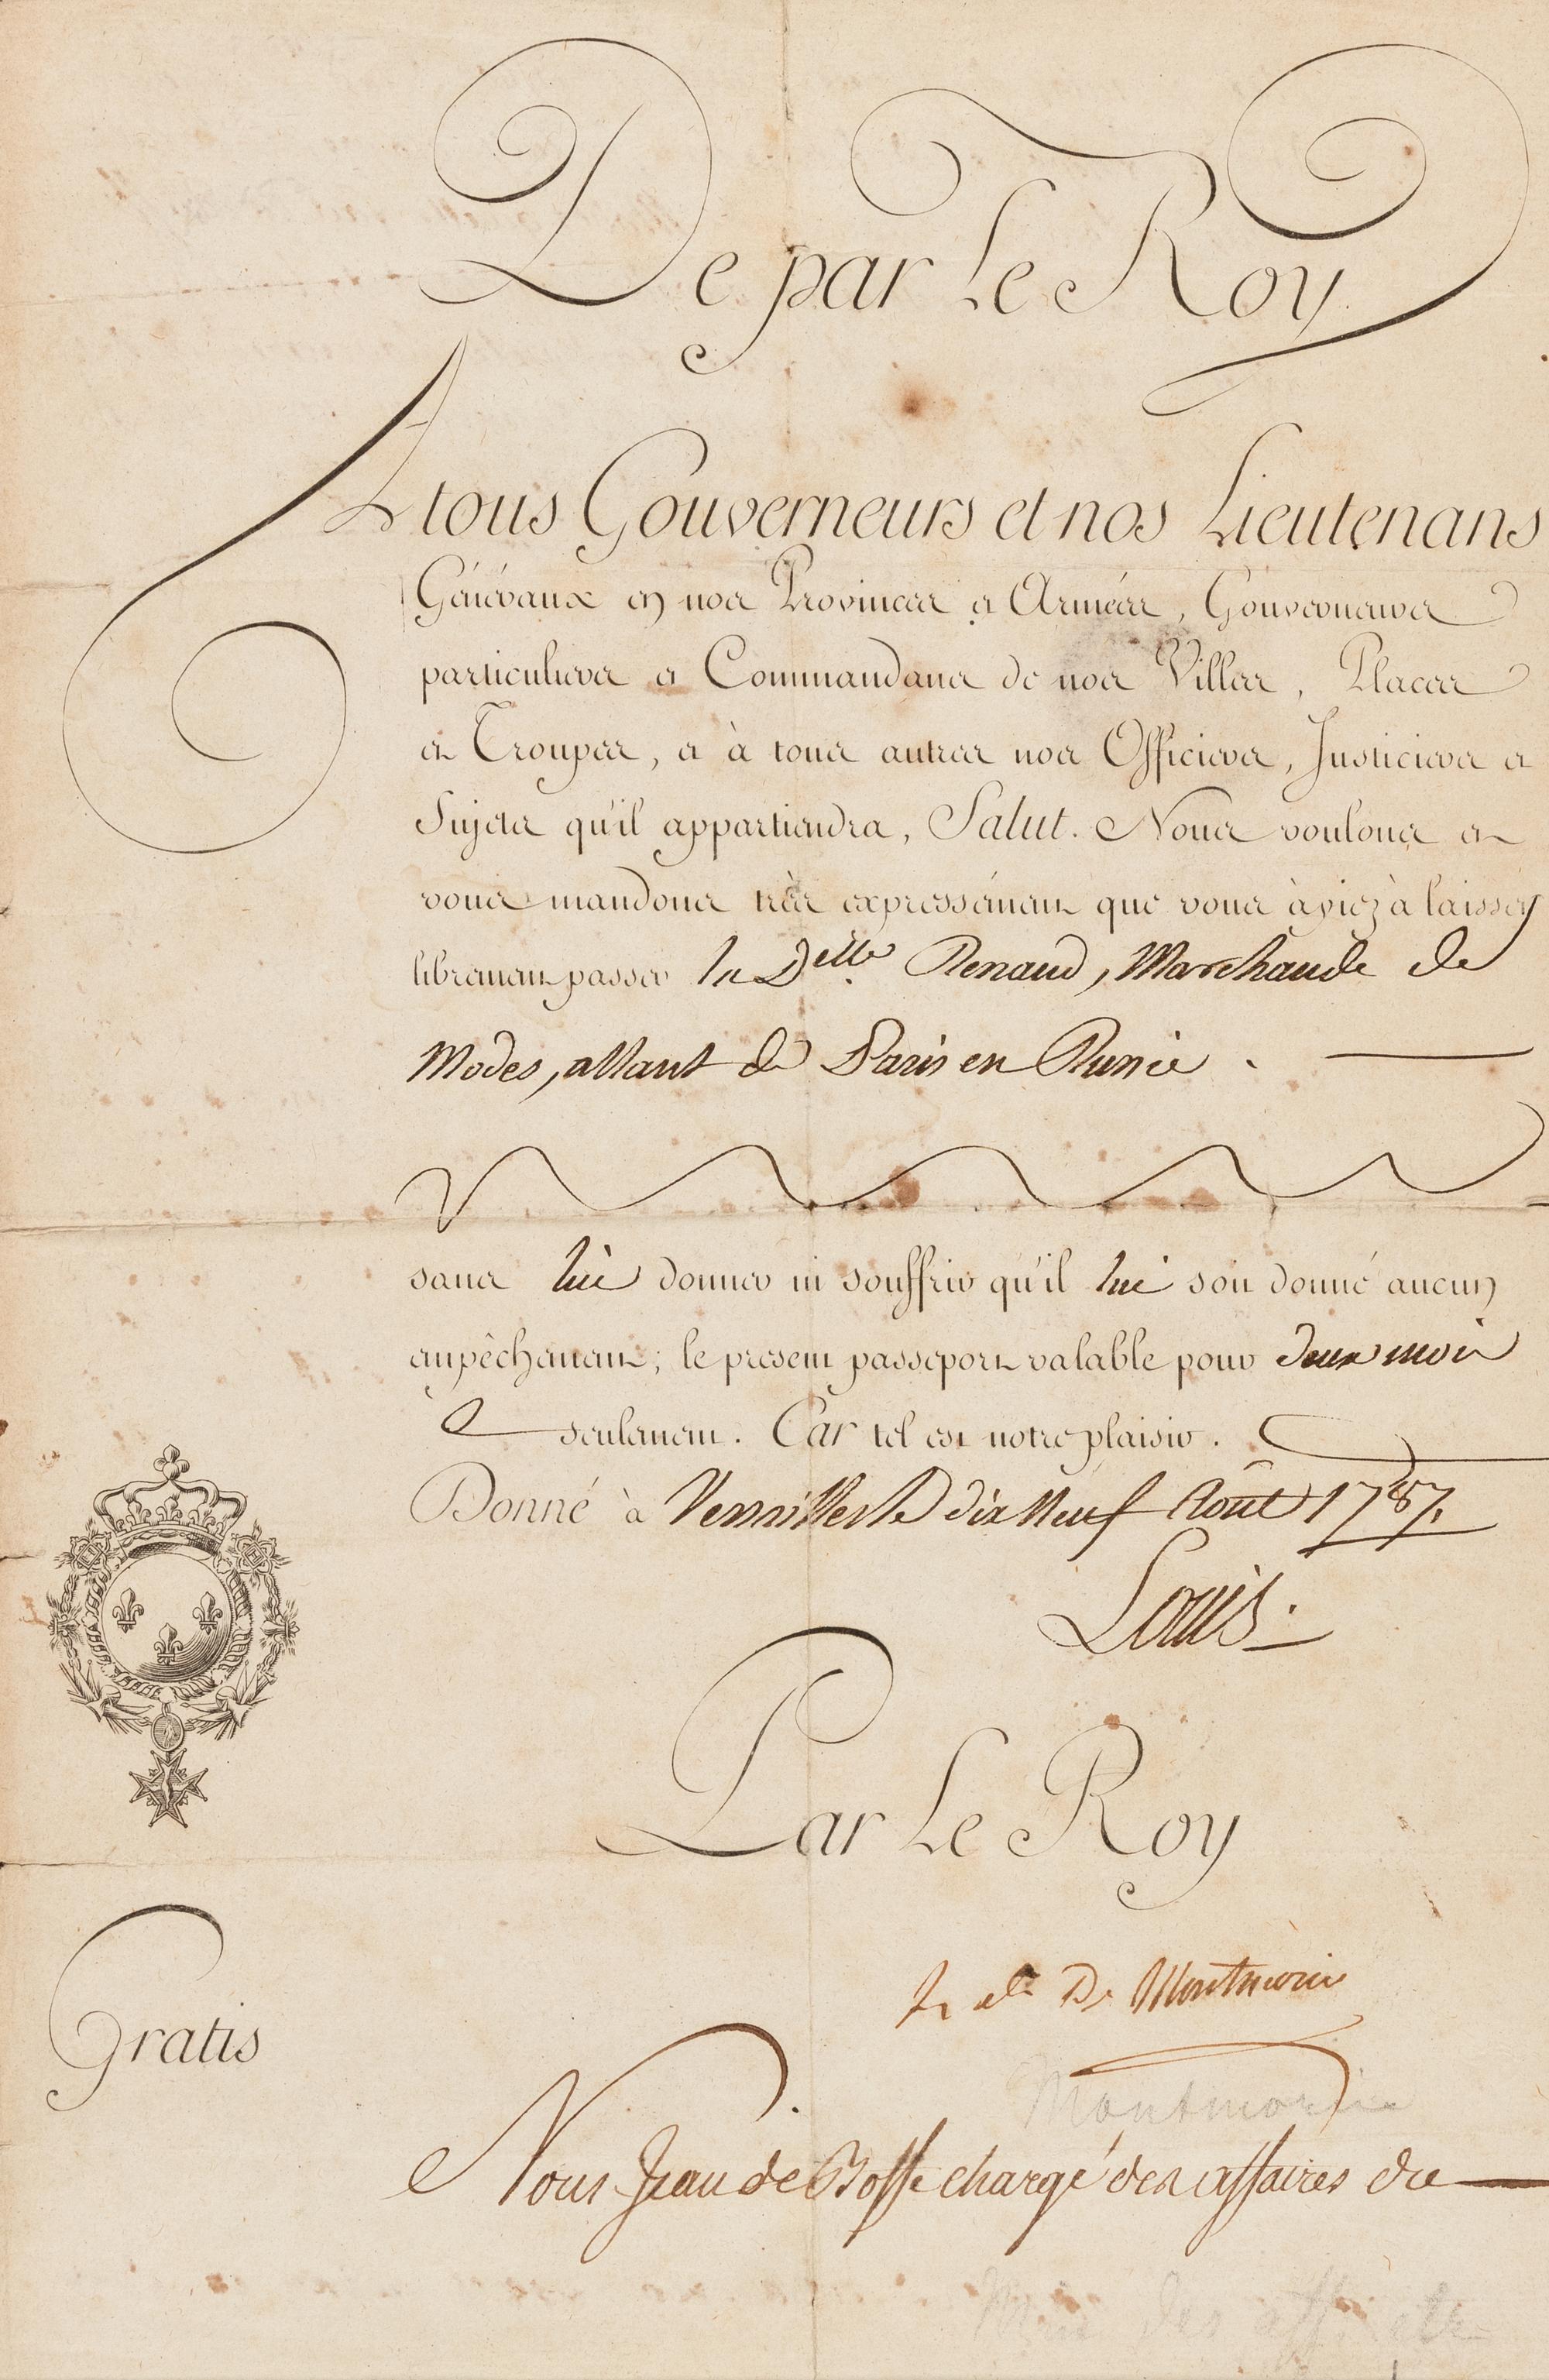 De par Le Roy
A tous Gouverneurs et nos Lieutenans
Généraux en nos Provinces et Armées, Gouverneurs
particuliers et Commandans de nos Villes, Places
et Troupes, et à tous autres nos Officiers, Justiciers et
Sujets qu'il appartiendra, Salut. Nous voulons et
vous mandons très expressément que vous àyiez à laisser
librement passer la Delle. Renaud, Marchande de
Modes, allant de Paris en Russie.
sans lui donner ni souffrir qu'il lui soit donné aucun
empêchement; le present passeport valable pour deux mois
seulement. Car tel est notre plaisir.
Donné à Versailles le dix Neuf Août 1787.
Louis.
Par Le Roy
De Montmorin
Gratis
Montmorin
Nous Jean de Bosse chargé des affaires de
Min des aff etr